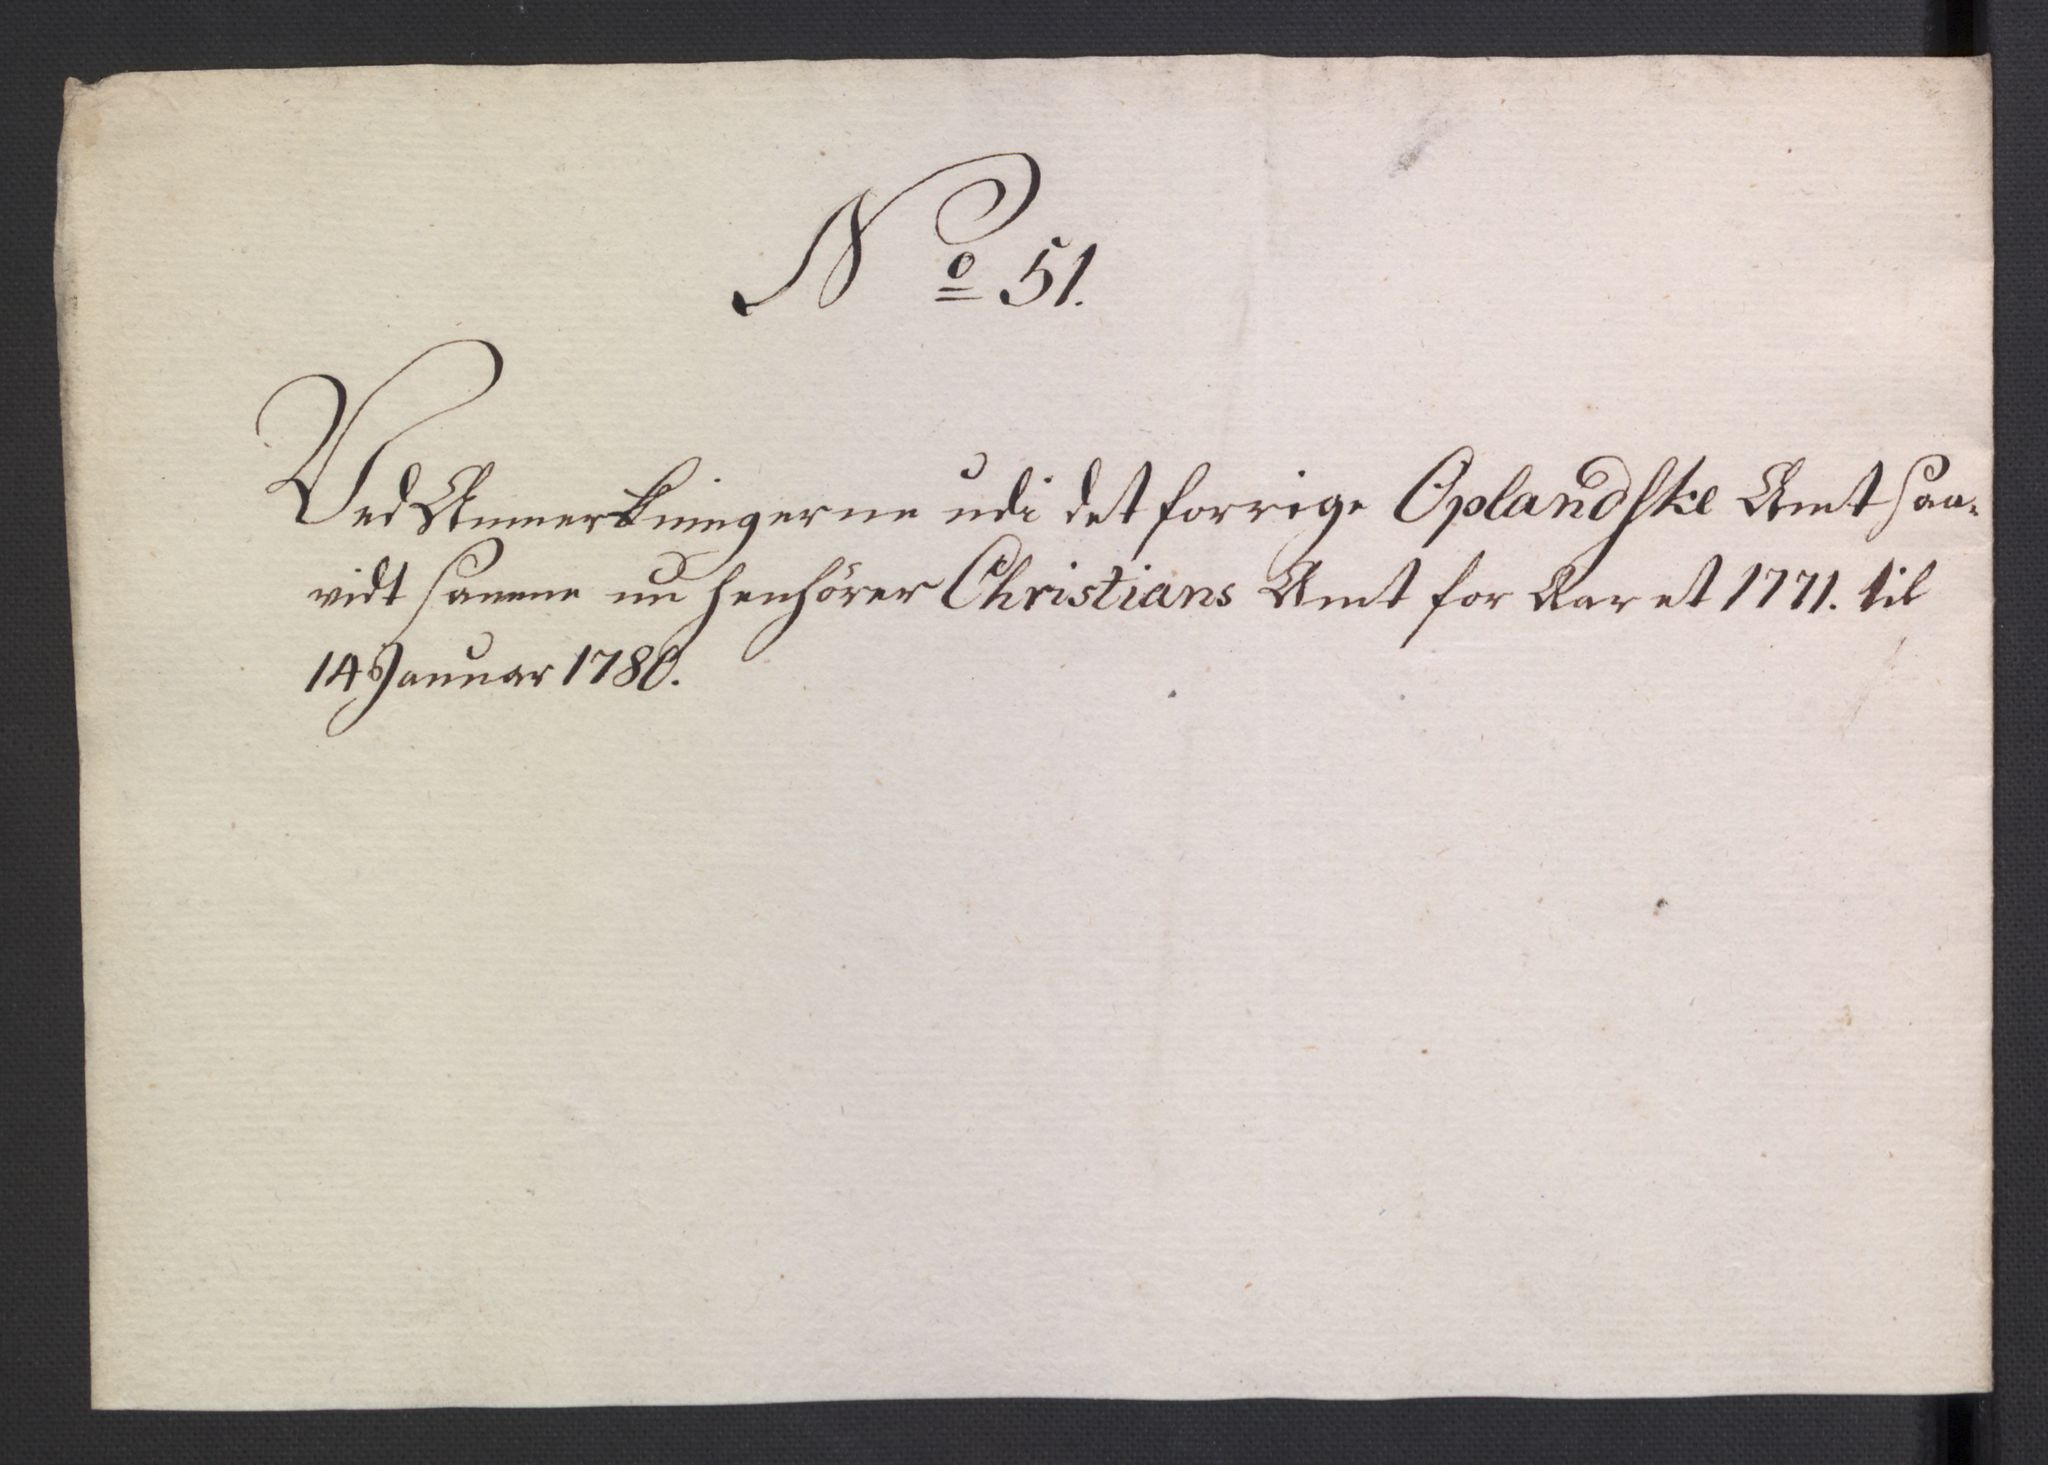 No 51.
Ved Anmerkningerne udi det forrige Oplandske Amt saa-
vidt samme nu henhörer Christians Amt for Aaret 1771. til
14 Januar 1780.